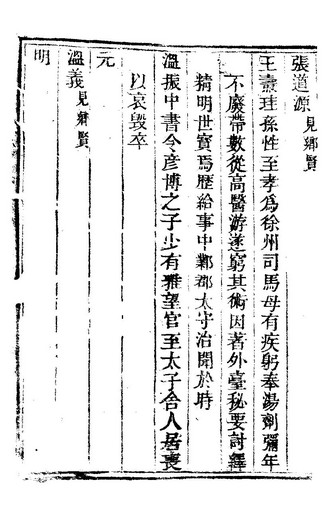 張道源見鄉賢
王燾珪孫性至孝爲徐州司馬母有疾躬奉湯劑彌年
不廢帶數從高醫游遂窮其術因著外臺秘要討繹
精明世寶焉歷給事中鄴郡太守治聞於時
溫振中書令彥博之子少有雅望官至太子舍人居喪
以哀毀卒
元
溫義見鄉賢
明